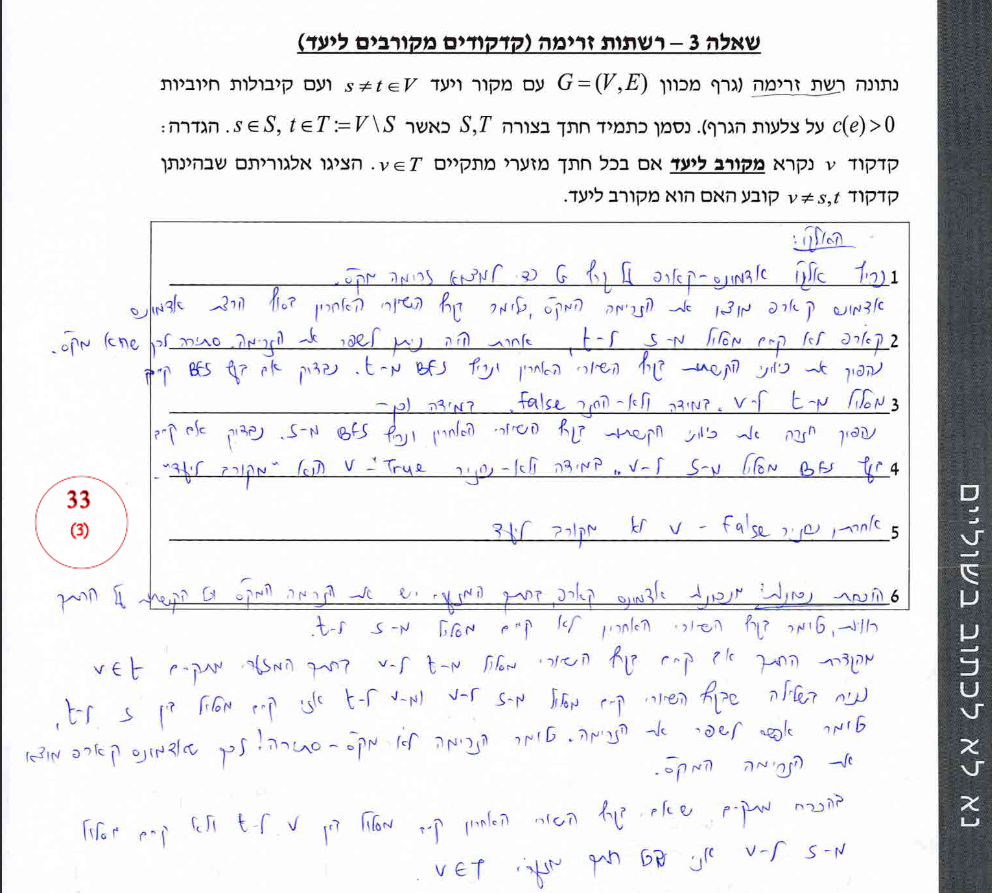 שאלה 3 – רשתות זרימה (קדקודים מקורבים ליעד)
נתונה רשת זרימה (גרף מכוון G=(V,E) עם מקור ויעד s≠t∈V ועם קיבולות חיוביות
c(e)>0 על צלעות הגרף). נסמן כתמיד חתך בצורה S,T כאשר s∈S, t∈T:=V\S. הגדרה:
קדקוד v נקרא מקורב ליעד אם בכל חתך מזערי מתקיים v∈T. הציגו אלגוריתם שבהינתן
קדקוד v≠s,t קובע האם הוא מקורב ליעד.
האלגו':
1 נריץ אלגו אדמונס-קארפ על גרף G כדי למצוא זרימה מקס.
אדמונס קארפ מוצא את הזרימה המקס, כלומר בגרף השיורי האחרון בסוף הרצת אדמונס
2 קארפ לא קיים מסלול מ-s ל-t, אחרת היה ניתן לשפר את הזרימה. סתירה לכך שהיא מקס.
נהפוך את כיווני הקשתות בגרף השיורי האחרון ונריץ BFS מ-t. נבדוק אם בעץ BFS קיים
3 מסלול מ-t ל-v. במידה ולא- החזר False. במידה וכן-
נהפוך חזרה את כיווני הקשתות בגרף השיורי האחרון ונריץ BFS מ-s. נבדוק אם קיים
4 בעץ BFS מסלול מ-s ל-v. במידה ולא- נחזיר True - v הוא "מקורב ליעד".
33
(3)
5 אחרת, נחזיר False - v לא מקורב ליעד
6 הוכחת נכונות: מנכונות אדמונס קארפ, בחתך המזערי יש את הזרימה המקס וכל הקשתות על החתך
רוויות, כלומר בגרף השיורי האחרון לא קיים מסלול מ-s ל-t.
מהגדרת החתך אם קיים בגרף השיורי מסלול מ-t ל-v בחתך המזערי מתקיים v∈t
נניח בשלילה שבגרף השיורי קיים מסלול מ-s ל-v ומ-v ל-t אזי קיים מסלול בין s ל-t,
כלומר אפשר לשפר את הזרימה. כלומר הזרימה לא מקס - סתירה! לכך שאדמונס קארפ מוצא
את הזרימה המקס.
בהכרח מתקיים שאם בגרף השיורי האחרון קיים מסלול בין v ל-t ולא קיים מסלול
מ-s ל-v אזי בכל חתך מזערי v∈T
נא לא לכתוב בשוליים